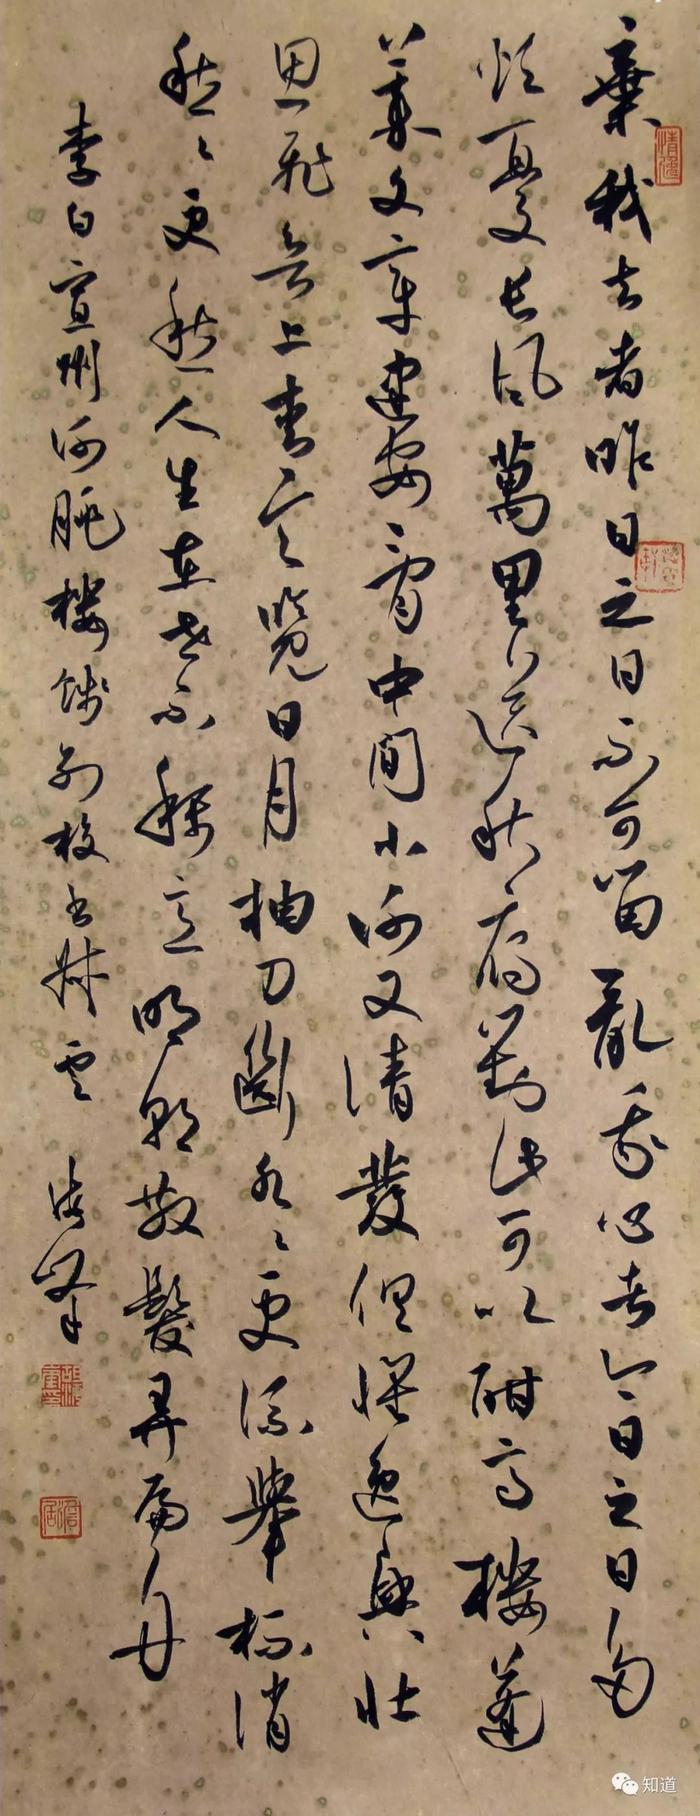 棄我去者昨日之日不可留亂我心者今日之日多
烦憂長风萬里送秋雁對此可以酣高樓蓬
莱文章建安骨中间小谢又清發俱怀逸興壮
思飛欲上青天览日月抽刀斷水々更流舉杯消
愁々更愁人生在世不稱意明朝散髮弄扁舟
李白宣州谢朓楼饯别校书叔雲 海峰
知道